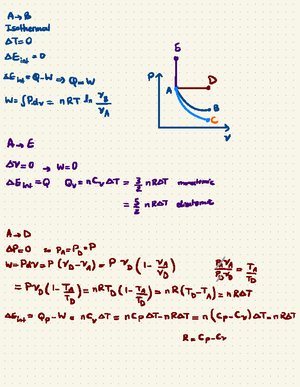 A → B
Isothermal
ΔT = 0
ΔE_int = 0
ΔE_int = Q - W ⇒ Q = W
W = ∫Pdv = nRT ln V_B/V_A
E
P
A
D
B
C
V
A → E
ΔV = 0 → W = 0
ΔE_int = Q Q_v = nC_vΔT = 3/2 nRΔT monatomic
= 5/2 nRΔT diatomic
A → D
ΔP = 0 ⇒ P_A = P_D = P
W = PdV = P(V_D - V_A) = P V_D (1 - V_A/V_D) P_A V_A/P_D V_D = T_A/T_D
= P V_D (1 - T_A/T_D) = nRT_D (1 - T_A/T_D) = nR(T_D - T_A) = nRΔT
ΔE_int = Q_p - W = nC_vΔT = nC_pΔT - nRΔT = n(C_p - C_v)ΔT = nRΔT
R = C_p - C_v